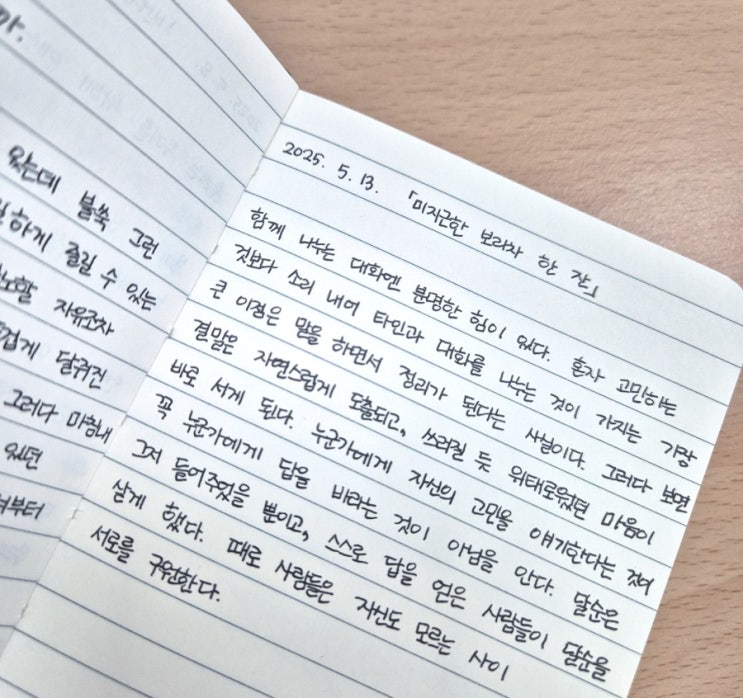 불쑥 그런
하게 즐길 수 있는
자유조차
달궈진
그러다 마침내
있던
2025. 5. 13. 「미지근한 보리차 한 잔」
함께 나누는 대화엔 분명한 힘이 있다. 혼자 고민하는
것보다 소리 내어 타인과 대화를 나누는 것이 가지는 가장
큰 이점은 말을 하면서 정리가 된다는 사실이다. 그러다 보면
결말은 자연스럽게 도출되고, 쓰러질 듯 위태로웠던 마음이
바로 서게 된다. 누군가에게 자신의 고민을 얘기한다는 것이
꼭 누군가에게 답을 바라는 것이 아님을 안다. 달순은
그저 들어주었을 뿐이고, 스스로 답을 얻은 사람들이 달순을
살게 했다. 때로 사람들은 자신도 모르는 사이
서로를 구원한다.